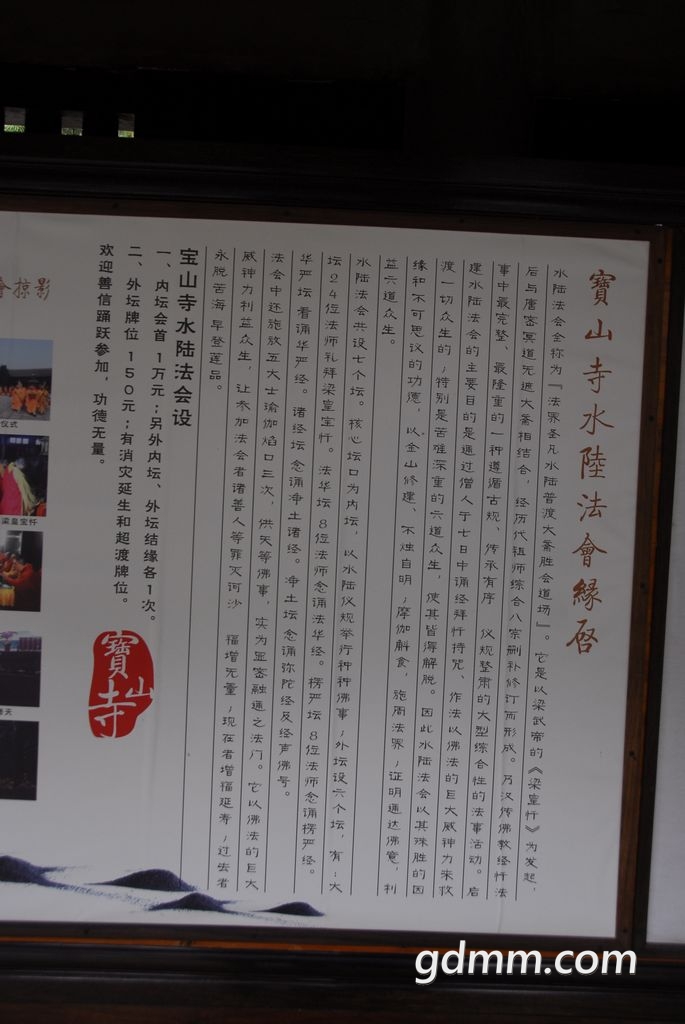 寶山寺水陸法會緣啓
水陆法会全称为『法界圣凡水陆普渡大斋胜会道场』。它是以梁武帝的《梁皇忏》为发起，
后与唐密冥道无遮大斋相结合，经历代祖师综合八宗删补修订而形成。乃汉传佛教经忏法
事中最完整、最隆重的一种遵循古规、传承有序、仪规整肃的大型综合性的法事活动。启
建水陆法会的主要目的是通过僧人于七日中诵经拜忏持咒、作法以佛法的巨大威神力来救
渡一切众生的，特别是苦难深重的六道众生，使其皆得解脱。因此水陆法会以其殊胜的因
缘和不可思议的功德，以金山修建、不烛自明，摩伽斛食，施周法界，证明通达佛意，利
益六道众生。
水陆法会共设七个坛。核心坛口为内坛，以水陆仪规举行种种佛事，外坛设六个坛，有：大
坛24位法师礼拜梁皇宝忏。法华坛8位法师念诵法华经。楞严坛8位法师念诵楞严经。
华严坛看诵华严经。诸经坛念诵净土诸经。净土坛念诵弥陀经及经声佛号。
法会中还施放五大士瑜伽焰口三次，供天等佛事，实为显密融通之法门。它以佛法的巨大
威神力利益众生，让参加法会者诸善人等罪灭河沙 福增无量，现在者增福延寿，过去者
永脱苦海早登莲品。
宝山寺水陆法会设
一、内坛会首1万元；另外内坛、外坛结缘各1次。
二、外坛牌位150元；有消灾延生和超渡牌位。
欢迎善信踊跃参加，功德无量。
寶山寺
會掠影
仪式
梁皇宝忏
天
gdmm.com